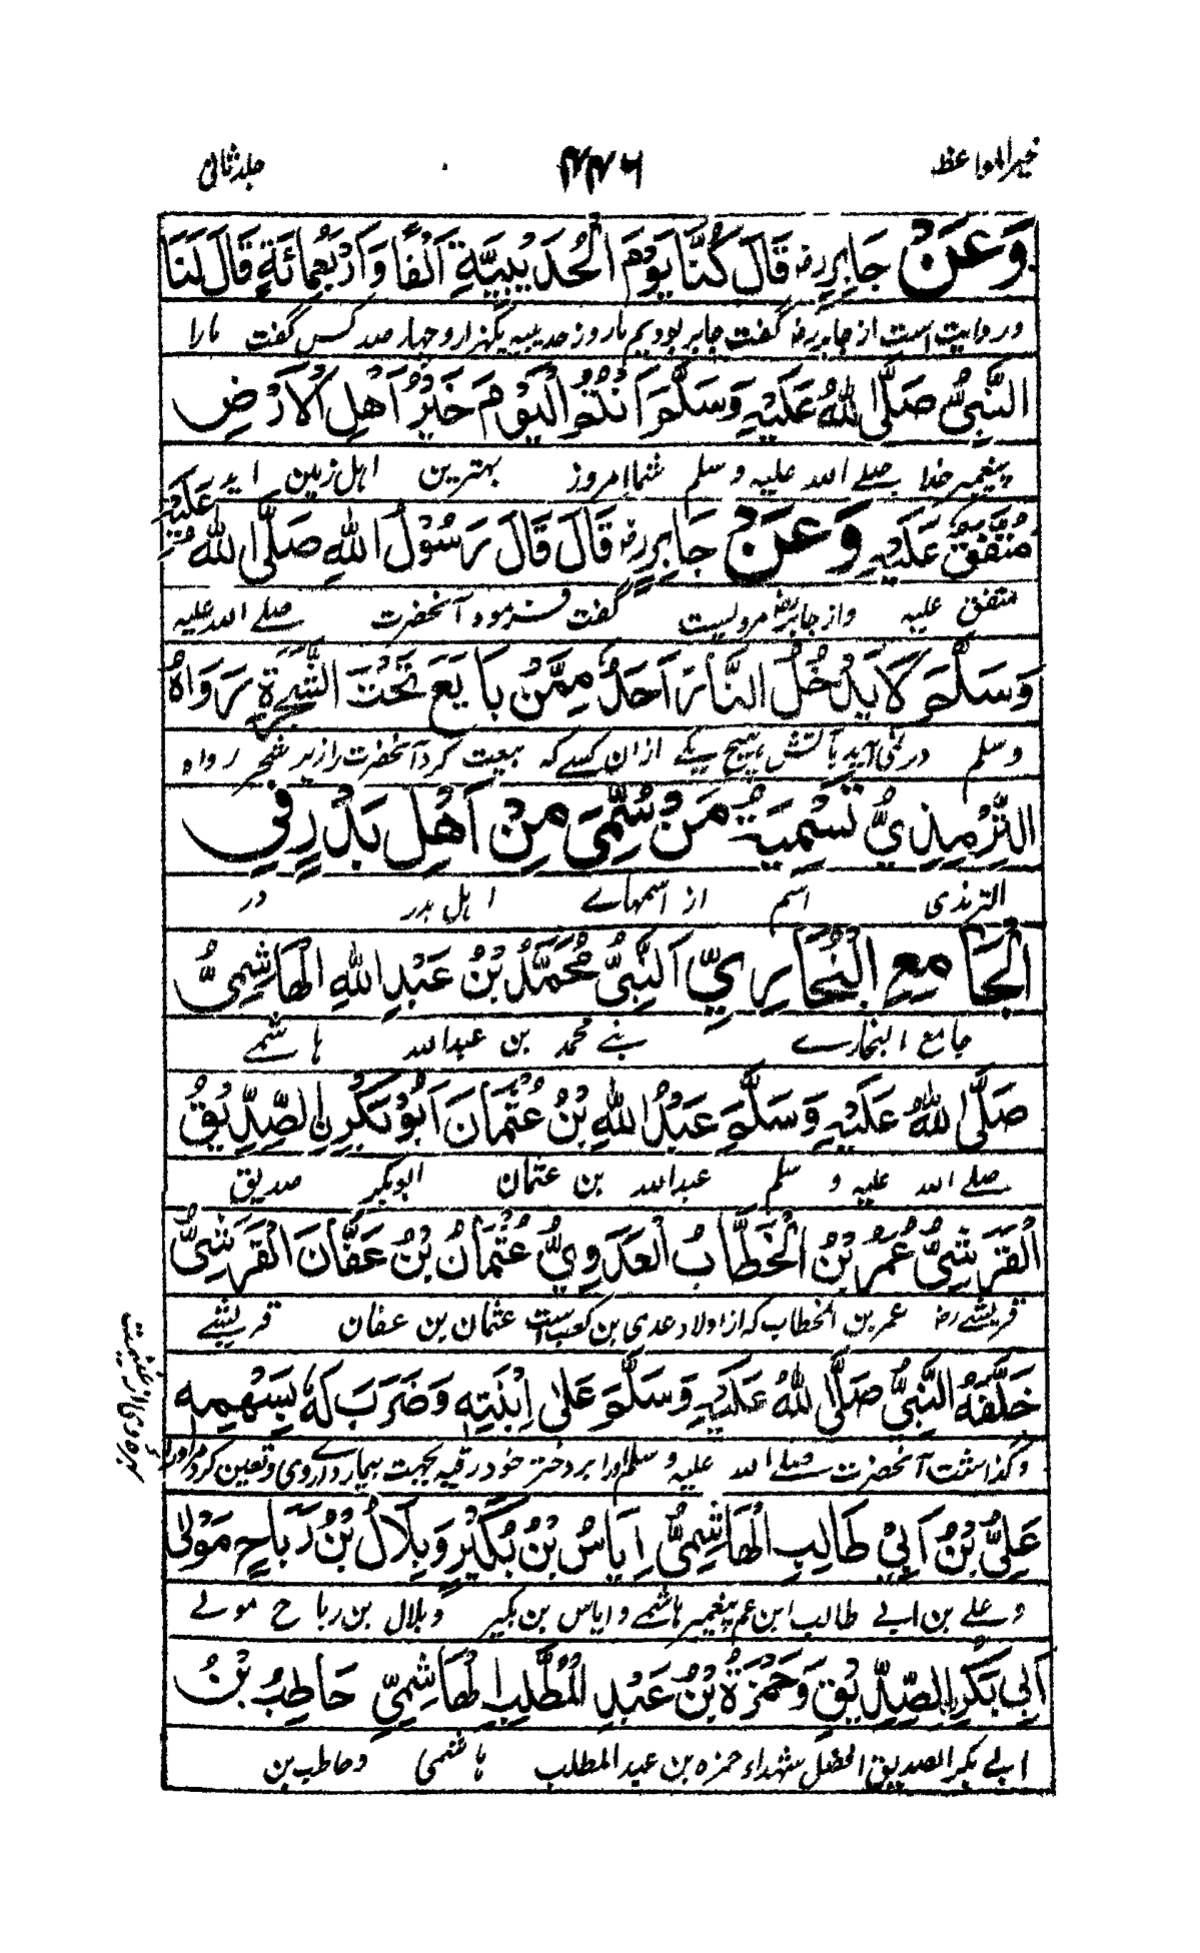 خیر المواعظ ۴۴۶ جلد ثانی
وَعَنْ جَابِرٍ رضـ قَالَ كُنَّا يَوْمَ الْحُدَيْبِيَّةِ اَلْفًا وَاَرْبَعُمِائَةٍ قَالَ لَنَا
و روایت است از جابر رضـ گفت جابر بودیم ما روز حدیبیه یکهزار و چهار صد کس گفت مارا
النَّبِيُّ صَلَّى اللهُ عَلَيْهِ وَسَلَّمَ اَنْتُمُ الْيَوْمَ خَيْرُ اَهْلِ الْاَرْضِ
پیغمبر خدا صلے اللہ علیہ و سلم شما امروز بهترین اهل زمین اید
مُتَّفَقٌ عَلَيْهِ وَعَنْ جَابِرٍ رضـ قَالَ قَالَ رَسُوْلُ اللهِ صَلَّى اللهُ عَلَيْهِ
متفق علیه و از جابر رضـ مرویست گفت فرموده آنحضرت صلے اللہ علیہ
وَسَلَّمَ لَا يَدْخُلُ النَّارَ اَحَدٌ مِمَّنْ بَايَعَ تَحْتَ الشَّجَرَةِ رَوَاهُ
وسلم در نمی آید بآتش هیچ یکے ازان کسے که بیعت کرد آنحضرت را زیر شجر رواه
التِّرْمِذِيُّ تَسْمِيَةُ مَنْ سُمِّيَ مِنْ اَهْلِ بَدْرٍ فِي
الترمذی اسم از اسمهاے اهل بدر در
الْجَامِعِ الْبُخَارِيِّ اَلنَّبِيُّ مُحَمَّدُ بْنُ عَبْدِ اللهِ الْهَاشِمِيُّ
جامع البخارے بنے محمد بن عبدالله هاشمے
صَلَّى اللهُ عَلَيْهِ وَسَلَّمَ عَبْدُ اللهِ بْنُ عُثْمَانَ اَبُوْ بَكْرِنِ الصِّدِّيْقُ
صلے اللہ علیہ و سلم عبدالله بن عثمان ابوبکر صدیق
الْقُرَشِيُّ عُمَرُ بْنُ الْخَطَّابُ الْعَدَوِيُّ عُثْمَانُ بْنُ عَفَّانَ الْقُرَشِيُّ
قریشے رضـ عمر بن الخطاب که از اولاد عدی بن کعب است عثمان بن عفان قریشے
خَلَّفَهُ النَّبِيُّ صَلَّى اللهُ عَلَيْهِ وَسَلَّمَ عَلٰى اِبْنَتِهٖ وَضَرَبَ لَهٗ بِسَهْمِهٖ
و گذاشت آنحضرت صلے اللہ علیہ و سلم او را بر دختر خود رقیه بجهت بیمارداری وی و تعین کرد مر او را
عَلِيُّ بْنُ اَبِيْ طَالِبِ الْهَاشِمِيُّ اِيَاسُ بْنُ بُكَيْرٍ وَبِلَالُ بْنُ رَبَاحٍ مَوْلٰى
و علے بن ابے طالب ابن عم پیغمبر هاشمے و ایاس بن بکیر و بلال بن رباح مولے
اَبِي بَكْرِ الصِّدِّيْقِ وَحَمْزَةُ بْنُ عَبْدِ الْمُطَّلِبِ الْهَاشِمِيِّ حَاطِبُ بْنُ
ابے بکر الصدیق افضل شهداء حمزه بن عبد المطلب هاشمی و حاطب بن